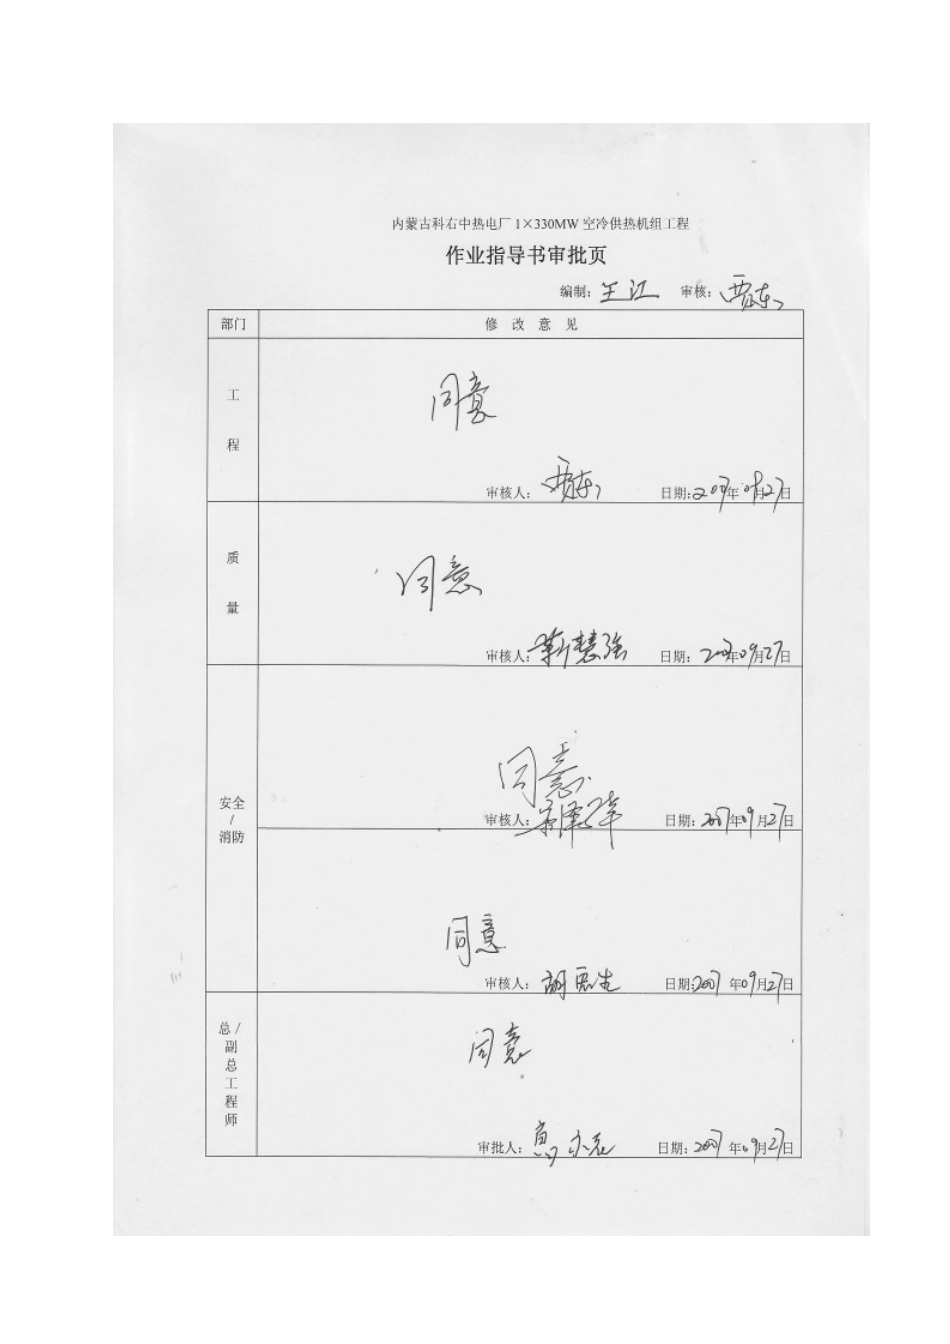 内蒙古科右中热电厂 1×330MW 空冷供热机组工程
作业指导书审批页
编制：王江 审核：贾东
部门 修 改 意 见
工程
同意
审核人：贾东 日期：2007年09月27日
质量
同意
审核人：靳慧强 日期：2007年09月27日
安全/消防
同意
审核人： 日期：2007年09月27日
同意
审核人：胡 日期：2007年09月27日
总/副总工程师
同意
审批人： 日期：2007年09月27日